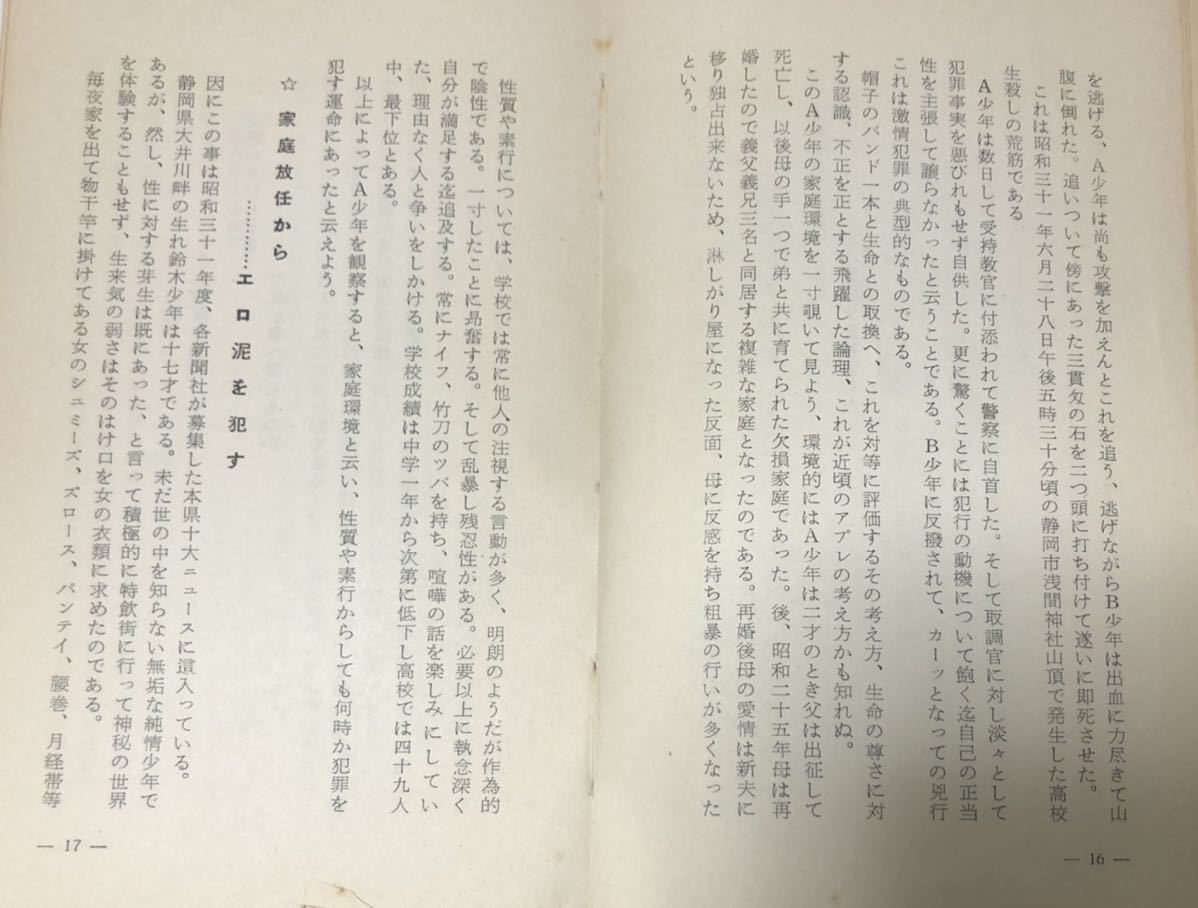 を逃げる、A少年は尚も攻撃を加えんとこれを追う、逃げながらB少年は出血に力尽きて山
腹に倒れた。追いついて傍にあった三貫匁の石を二つ頭に打ち付けて遂いに即死させた。
これは昭和三十一年六月二十八日午後五時三十分頃の静岡市浅間神社山頂で発生した高校
生殺しの荒筋である
A少年は数日して受持教官に付添われて警察に自首した。そして取調官に対し淡々として
犯罪事実を悪びれもせず自供した。更に驚くことには犯行の動機について飽く迄自己の正当
性を主張して譲らなかったと云うことである。B少年に反撥されて、カーッとなっての兇行
これは激情犯罪の典型的なものである。
帽子のバンド一本と生命との取換へ、これを対等に評価するその考え方、生命の尊さに対
する認識、不正を正とする飛躍した論理、これが近頃のアプレの考え方かも知れぬ。
このA少年の家庭環境を一寸覗いて見よう、環境的にはA少年は二才のとき父は出征して
死亡し、以後母の手一つで弟と共に育てられた欠損家庭であった。後、昭和二十五年母は再
婚したので義父義兄三名と同居する複雑な家庭となったのである。再婚後母の愛情は新夫に
移り独占出来ないため、淋しがり屋になった反面、母に反感を持ち粗暴の行いが多くなった
という。
— 16 —
性質や素行については、学校では常に他人の注視する言動が多く、明朗のようだが作為的
で陰性である。一寸したことに昻奮する。そして乱暴し残忍性がある。必要以上に執念深く
自分が満足する迄追及する。常にナイフ、竹刀のツバを持ち、喧嘩の話を楽しみにしてい
た、理由なく人と争いをしかける。学校成績は中学一年から次第に低下し高校では四十九人
中、最下位とある。
以上によってA少年を観察すると、家庭環境と云い、性質や素行からしても何時か犯罪を
犯す運命にあったと云えよう。
☆ 家庭放任から
…………エロ泥を犯す
因にこの事は昭和三十一年度、各新聞社が募集した本県十大ニュースに這入っている。
静岡県大井川畔の生れ鈴木少年は十七才である。未だ世の中を知らない無垢な純情少年で
あるが、然し、性に対する芽生は既にあった、と言って積極的に特飲街に行って神秘の世界
を体験することもせず、生来気の弱さはそのはけ口を女の衣類に求めたのである。
毎夜家を出て物干竿に掛けてある女のシュミーズ、ズロース、パンテイ、腰巻、月経帯等
— 17 —